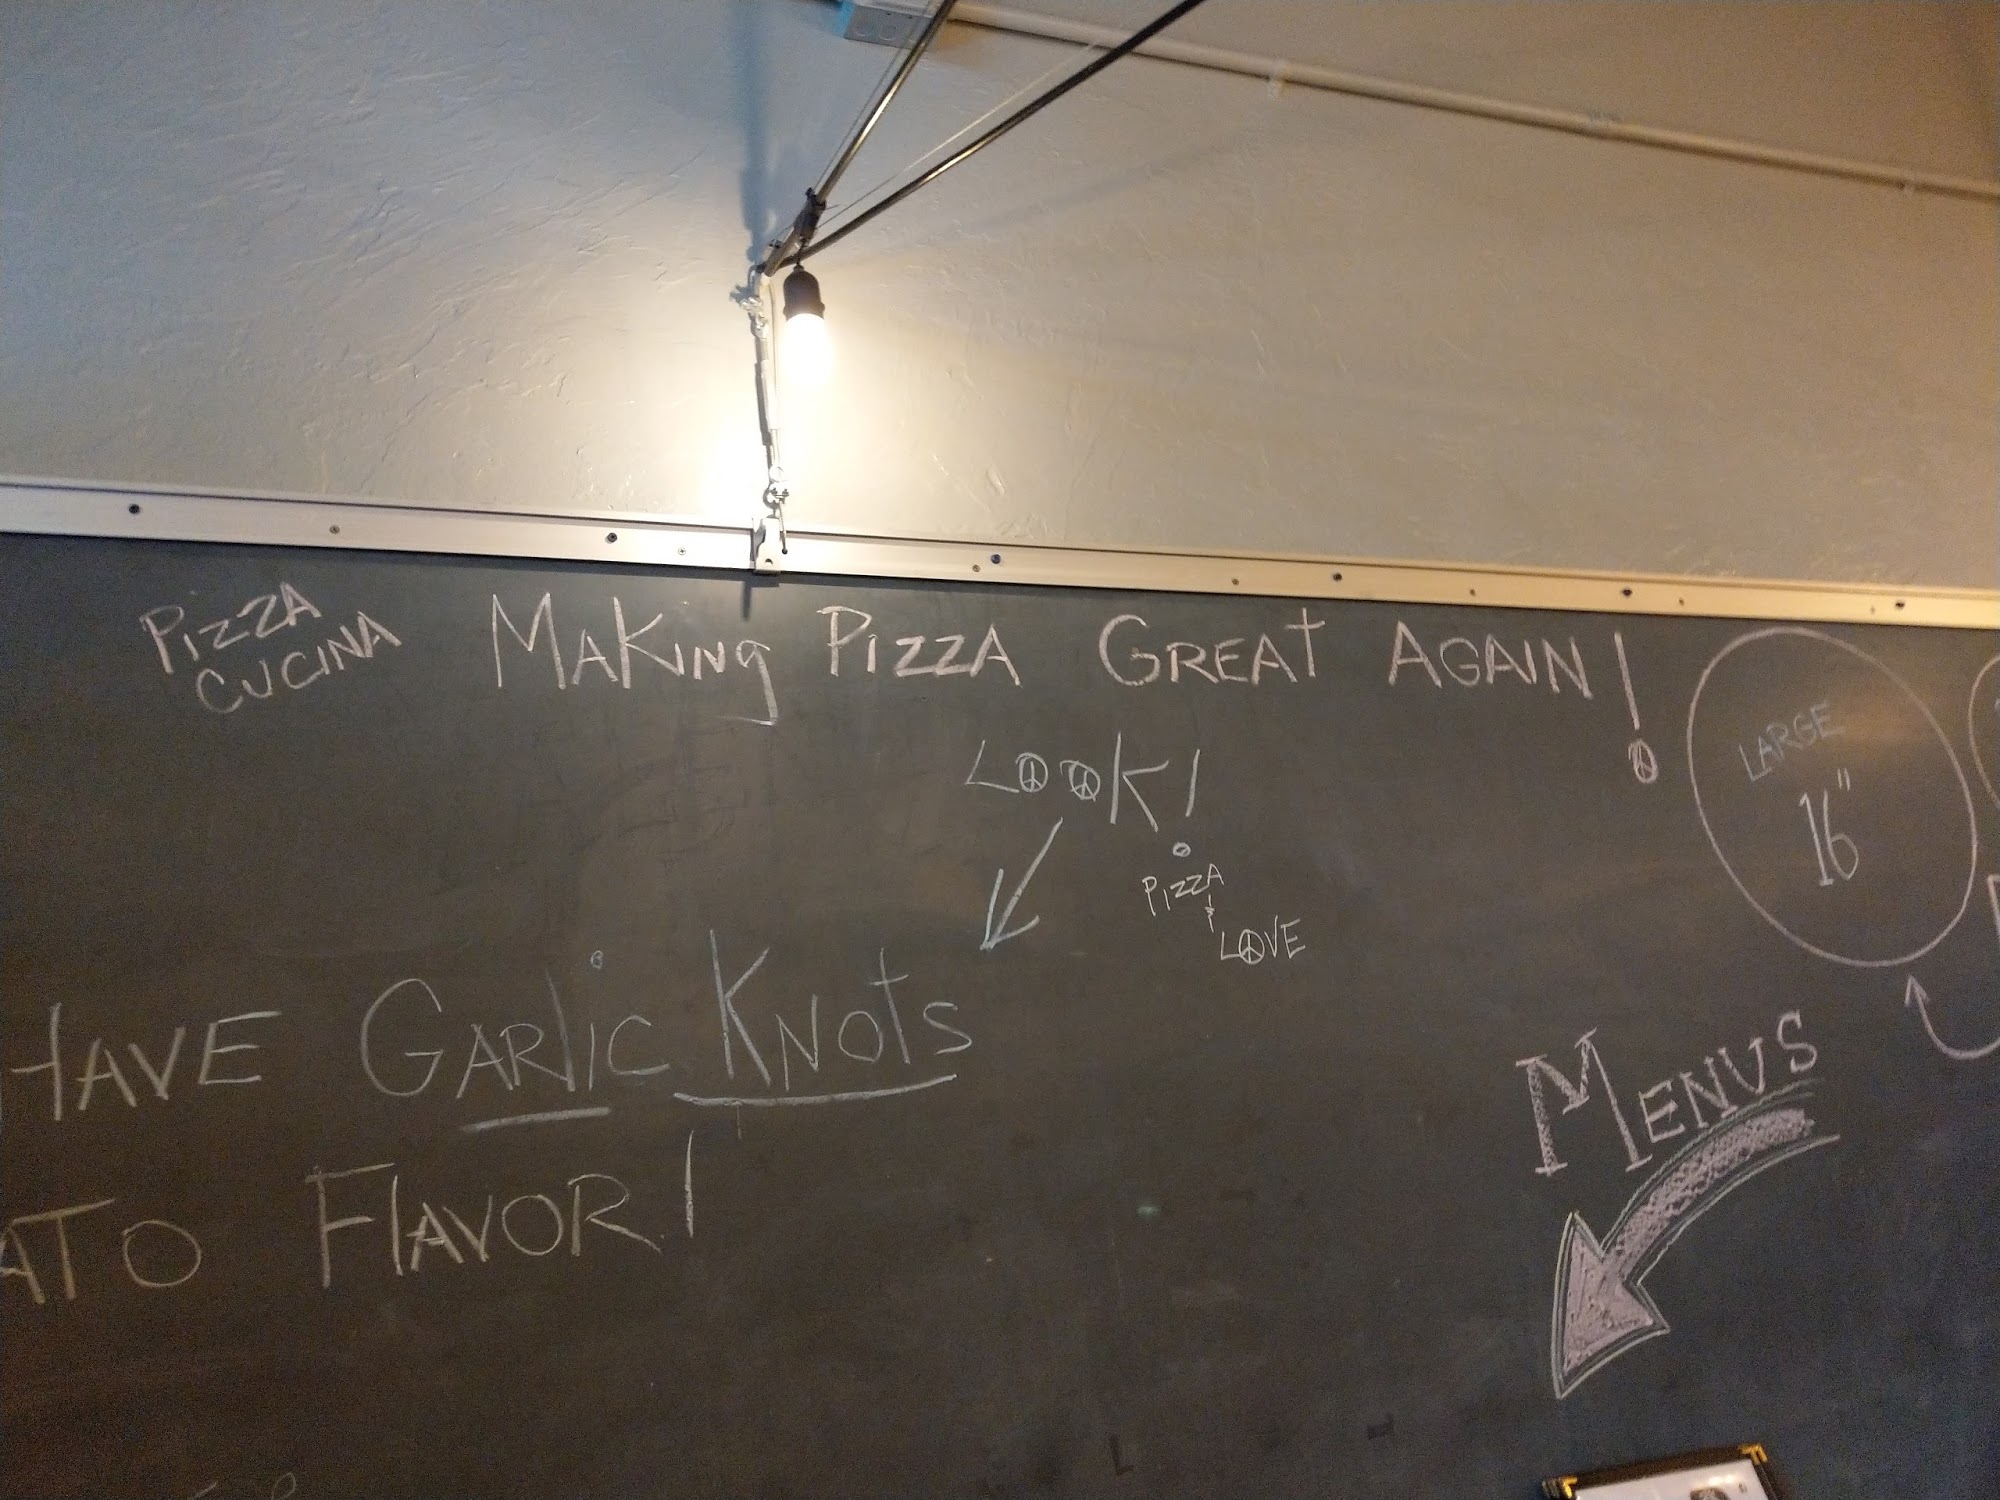 PIZZA
CUCINA
MAKING PIZZA GREAT AGAIN!
LOOK!
PIZZA
&
LOVE
LARGE
16"
HAVE GARLIC KNOTS
FLAVOR!
MENUS